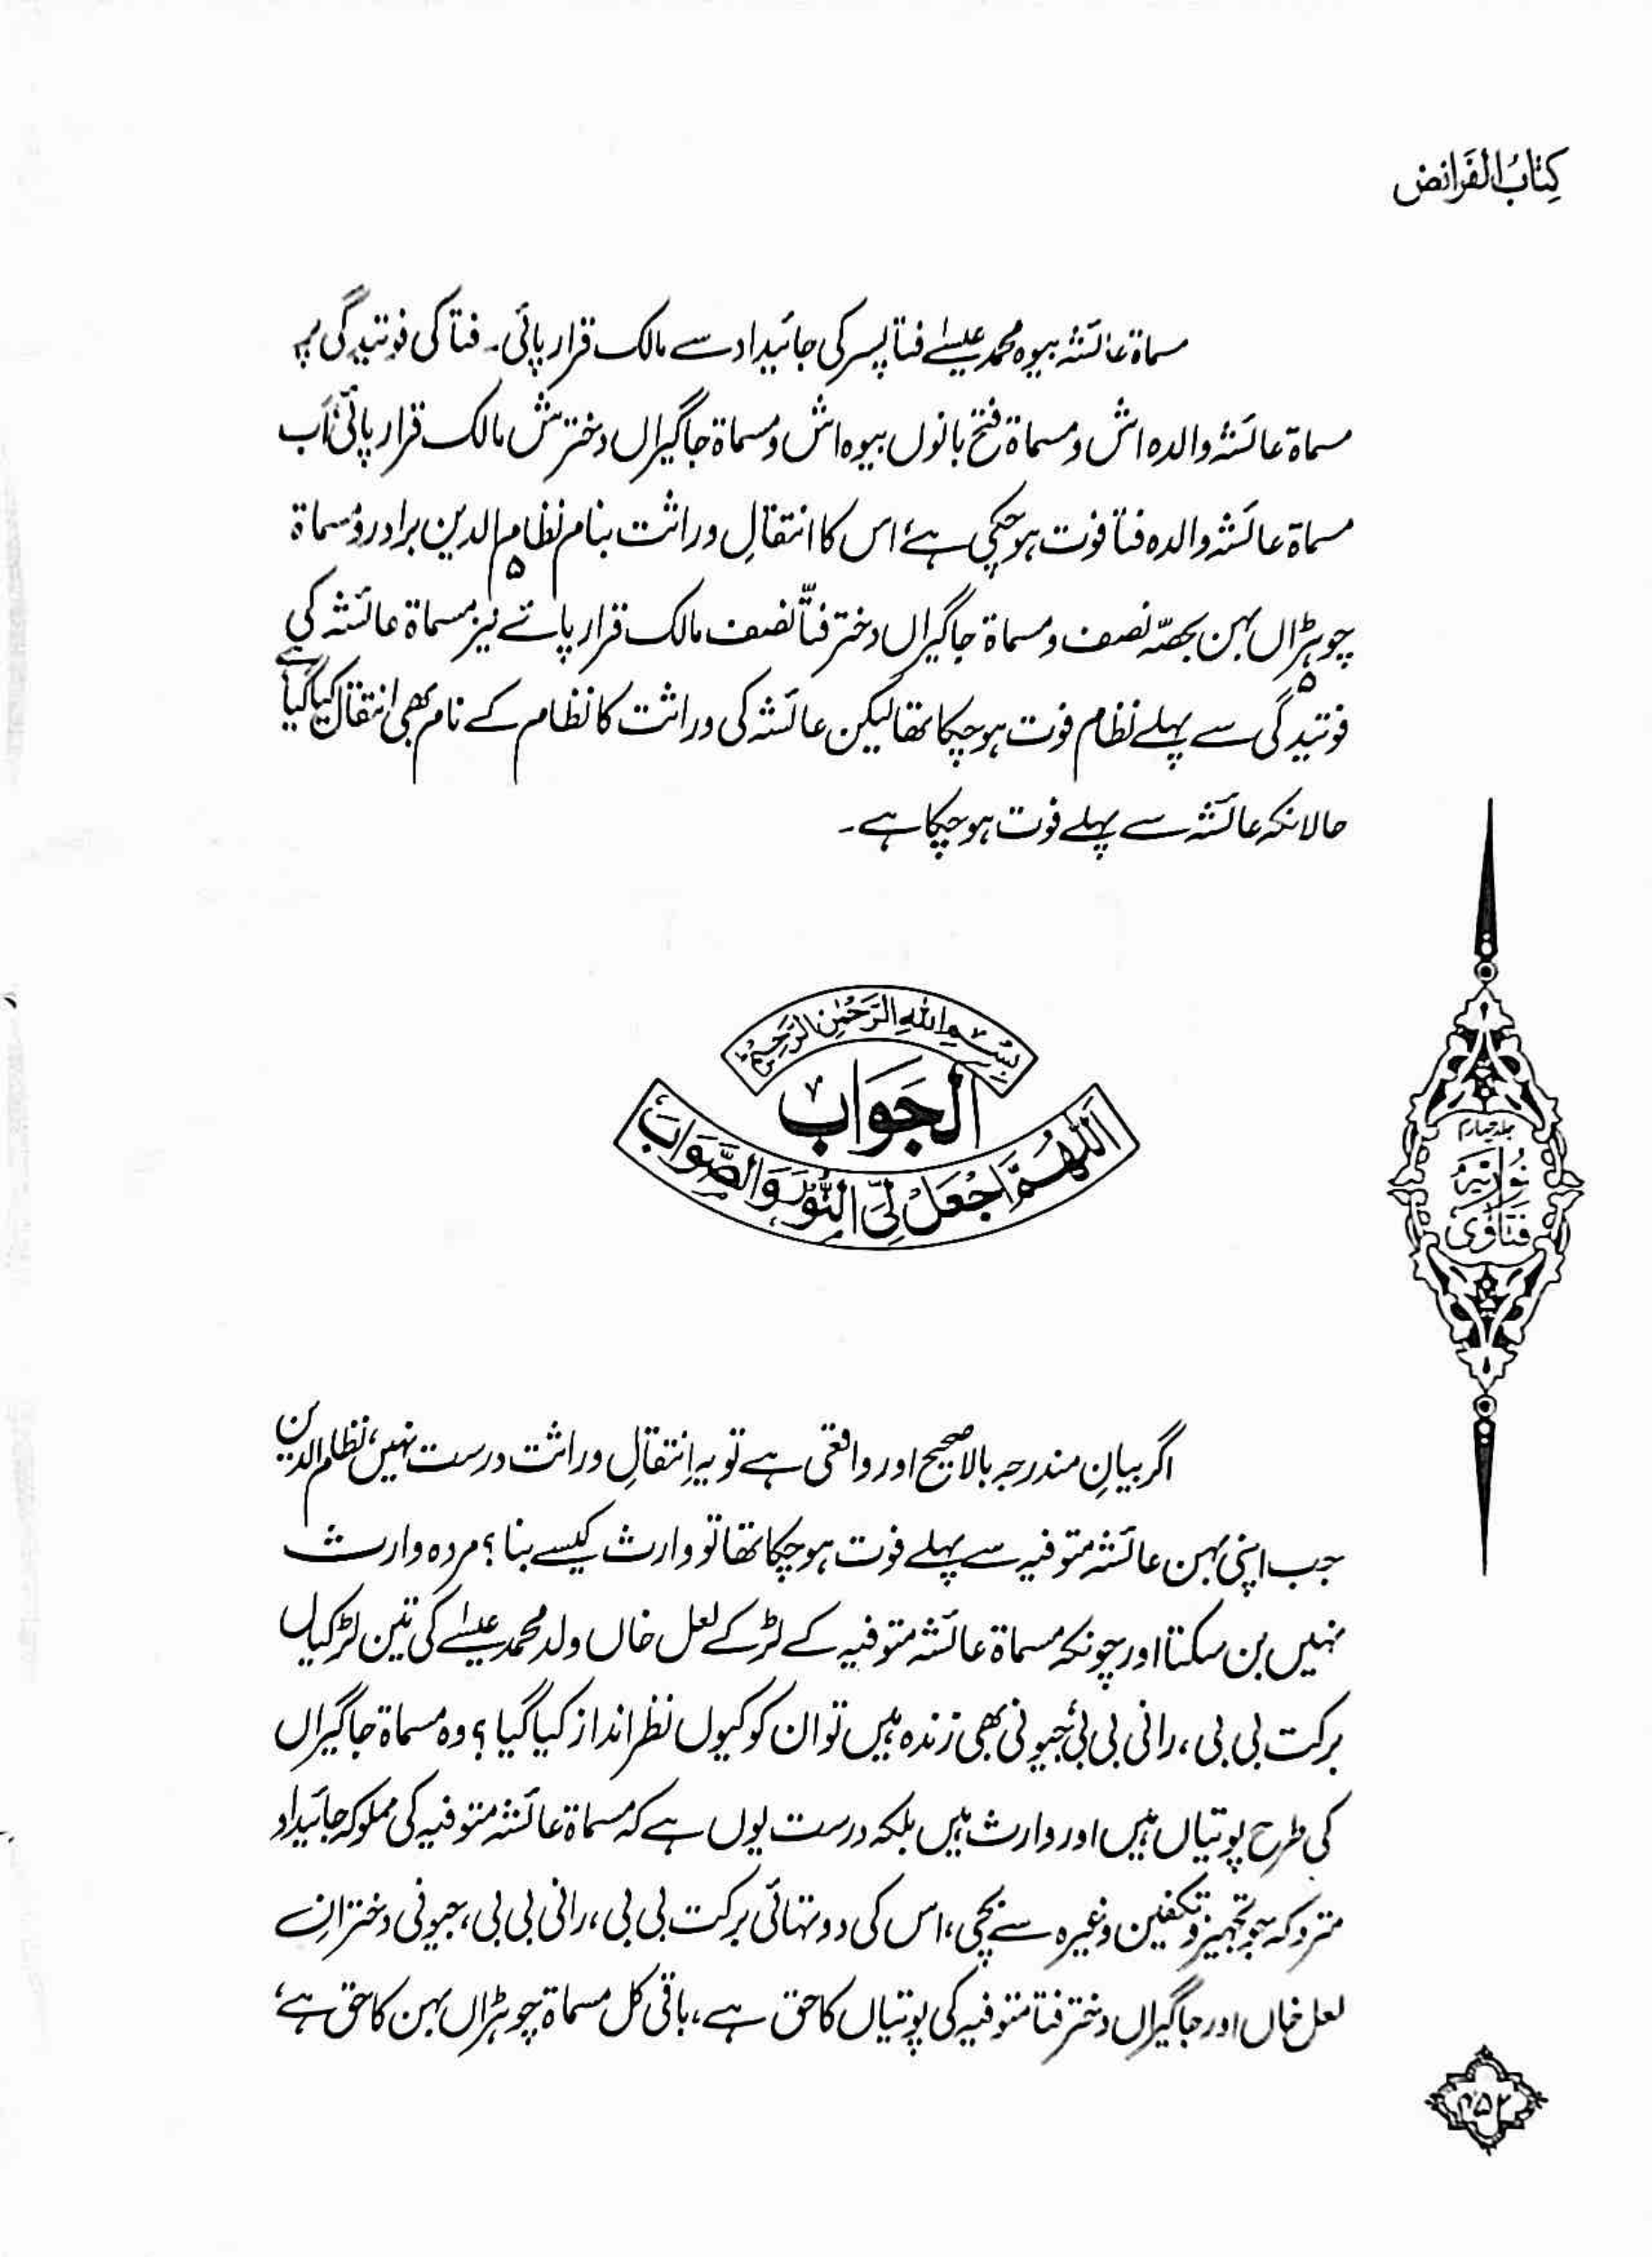 کِتَابُ الفَرَائض
مسماۃ عائشہ بیوہ محمد عیسٰے فتا پسر کی جائیداد سے مالک قرار پائی۔ فتا کی فوتیدگی پر
مسماۃ عائشہ والدہ اش و مسماۃ فتح بانوں بیوہ اش و مسماۃ جاگیراں دخترش مالک قرار پائی، اَب
مسماۃ عائشہ والدہ فتا فوت ہو چکی ہے، اس کا انتقالِ وراثت بنام نظام الدین برادر و مسماۃ
چوہڑاں بہن بحصّہ نصف و مسماۃ جاگیراں دختر فتا نصف مالک قرار پائے نیز مسماۃ عائشہ کی
فوتیدگی سے پہلے نظام فوت ہو چکا تھا لیکن عائشہ کی وراثت کا نظام کے نام بھی انتقال کیا گیا ہے
حالانکہ عائشہ سے پہلے فوت ہو چکا ہے۔
بِسْمِ اللهِ الرَّحْمٰنِ الرَّحِيْمِ
اَلجَوَاب
اَللّٰهُمَّ اجْعَلْ لِّیَ النُّوْرَ وَالصَّوَابَ
جلد چہارم
نُورِیَّہ
فتَاوٰی
اگر بیانِ مندرجہ بالا صحیح اور واقعی ہے تو یہ اِنتقالِ وراثت درست نہیں، نظام الدین
جب اپنی بہن عائشہ متوفیہ سے پہلے فوت ہو چکا تھا تو وارث کیسے بنا؟ مردہ وارث
نہیں بن سکتا اور چونکہ مسماۃ عائشہ متوفیہ کے لڑکے لعل خاں ولد محمد عیسٰے کی تین لڑکیاں
برکت بی بی، رانی بی بی، جیونی بھی زندہ ہیں تو ان کو کیوں نظر انداز کیا گیا؟ وہ مسماۃ جاگیراں
کی طرح پوتیاں ہیں اور وارث ہیں بلکہ درست یوں ہے کہ مسماۃ عائشہ متوفیہ کی مملوکہ جائیداد
متروکہ جو تجہیز و تکفین وغیرہ سے بچی، اس کی دو تہائی برکت بی بی، رانی بی بی، جیونی دخترانِ
لعل خاں اور جاگیراں دختر فتا متوفیہ کی پوتیاں کا حق ہے، باقی کل مسماۃ چوہڑاں بہن کا حق ہے،
۴۵۲